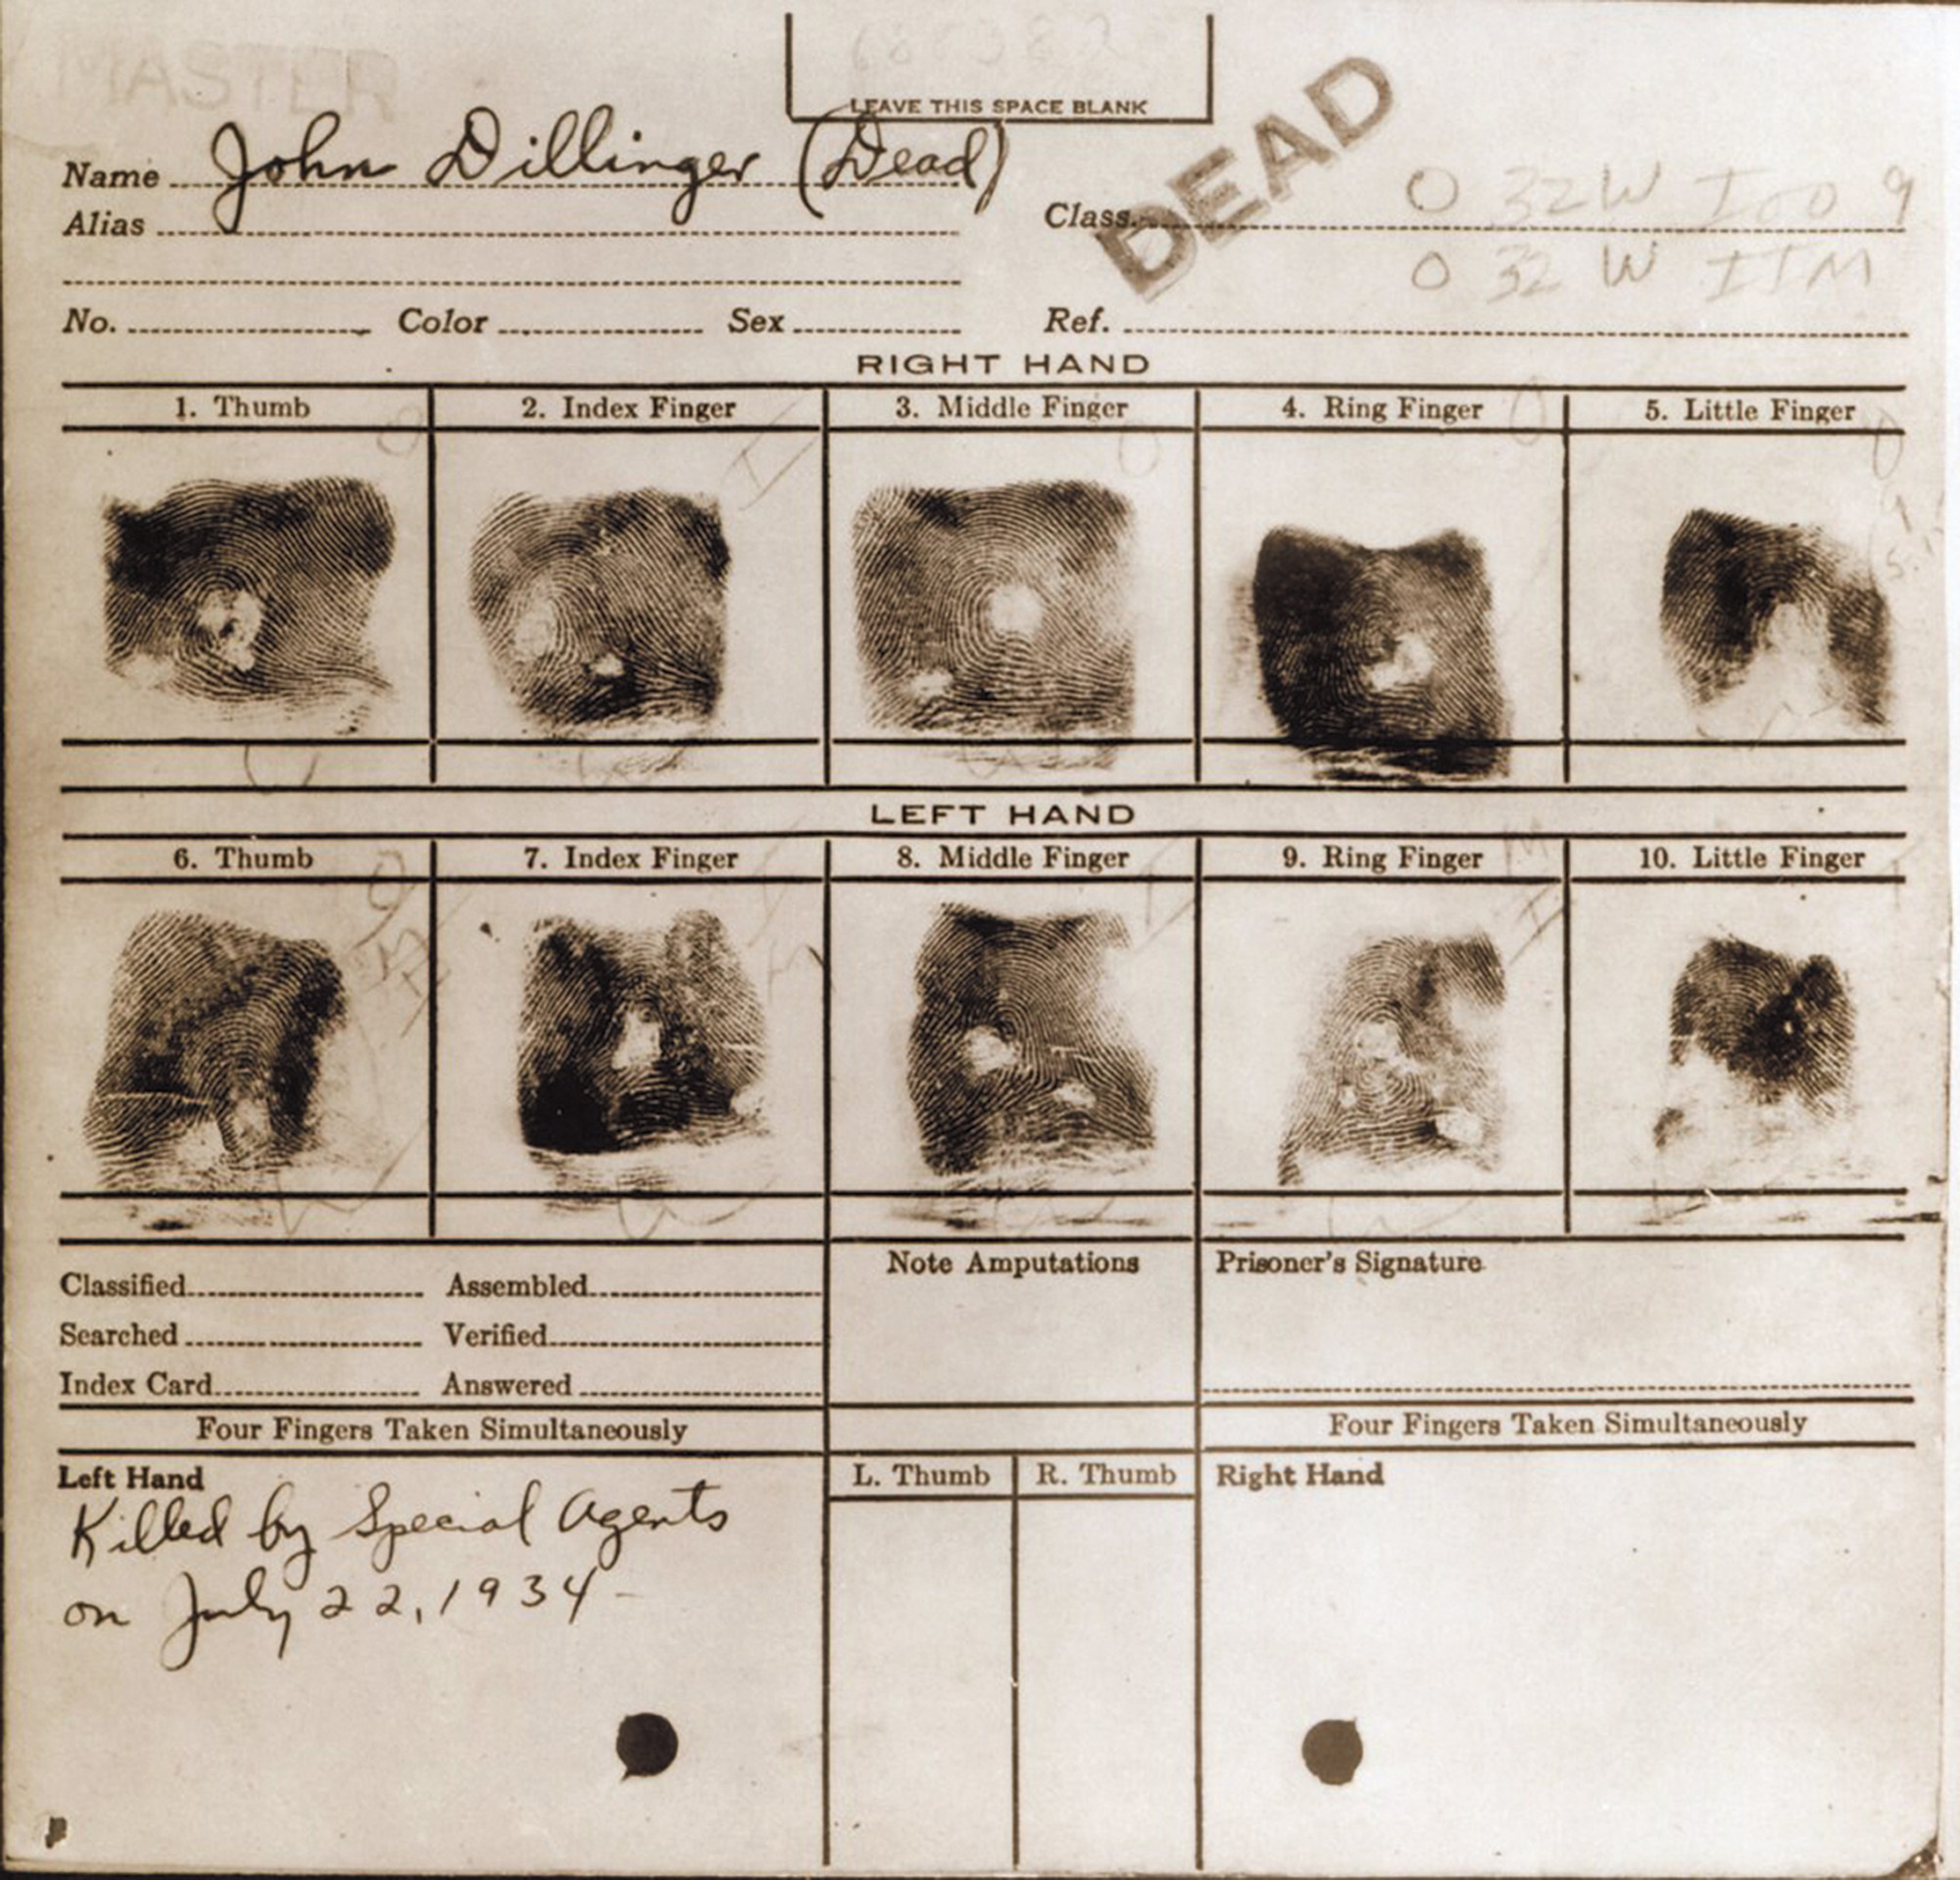 MASTER
LEAVE THIS SPACE BLANK
DEAD
Name John Dillinger (Dead)
Alias
Class. O 32 W I 9
O 32 W
No. Color Sex Ref.
RIGHT HAND
1. Thumb 2. Index Finger 3. Middle Finger 4. Ring Finger 5. Little Finger
LEFT HAND
6. Thumb 7. Index Finger 8. Middle Finger 9. Ring Finger 10. Little Finger
Note Amputations Prisoner's Signature
Classified Assembled
Searched Verified
Index Card Answered
Four Fingers Taken Simultaneously Four Fingers Taken Simultaneously
Left Hand L. Thumb R. Thumb Right Hand
Killed by Special Agents
on July 22, 1934